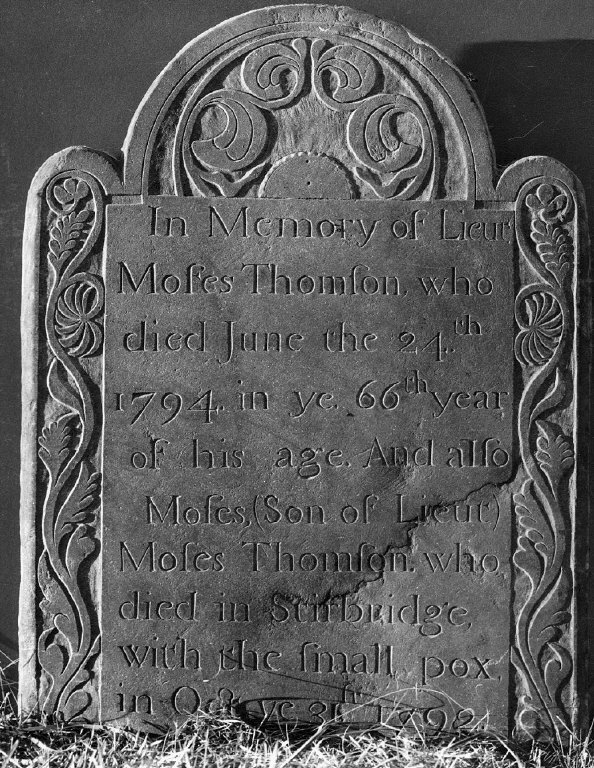 In Memory of Lieut
Moſes Thomſon, who
died June the 24.th
1794. in ye. 66th year
of his age. And alſo
Moſes, (Son of Lieut)
Moſes Thomſon. who
died in Stirbridge,
with the ſmall pox,
in Oct ye 31ſt 1792.